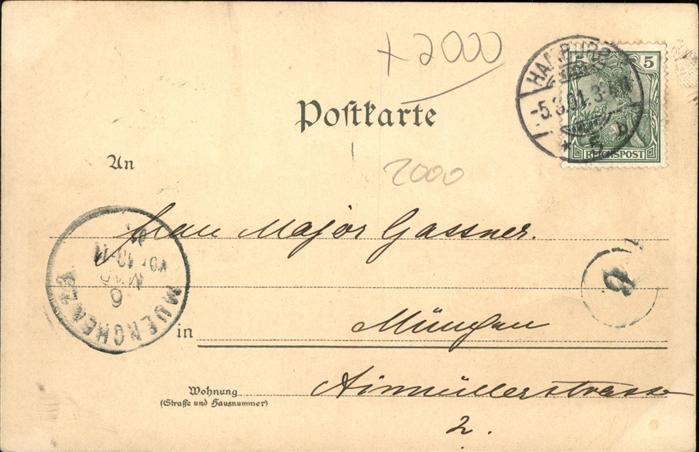 + 2000
5 5
HAMBURG
-5.3.01. 3-4N
* 5 b.
REICHSPOST
Poſtkarte
2000
An
Frau Major Gassner.
MUENCHEN 23
6
VOR 10-11
in München
Wohnung Ainmüllerstrasse
(Straße und Hausnummer)
2.